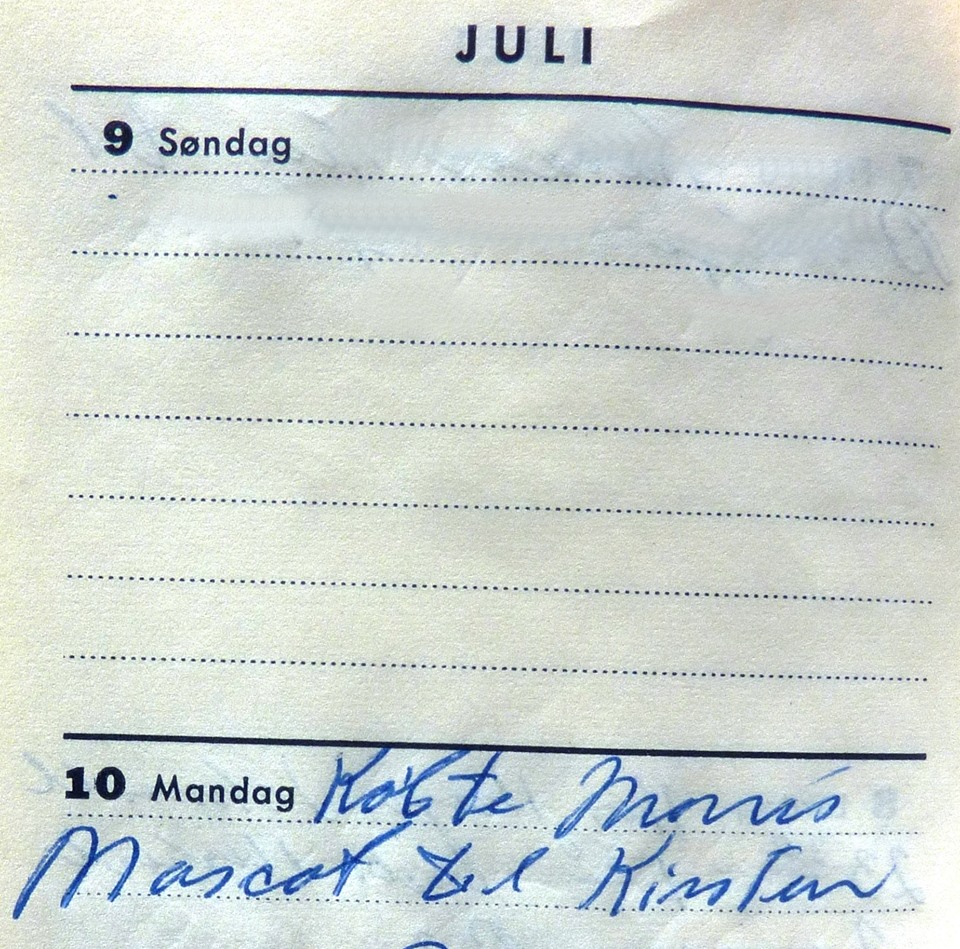 JULI
9 Søndag
10 Mandag Købte Morris
Mascot til Kirsten